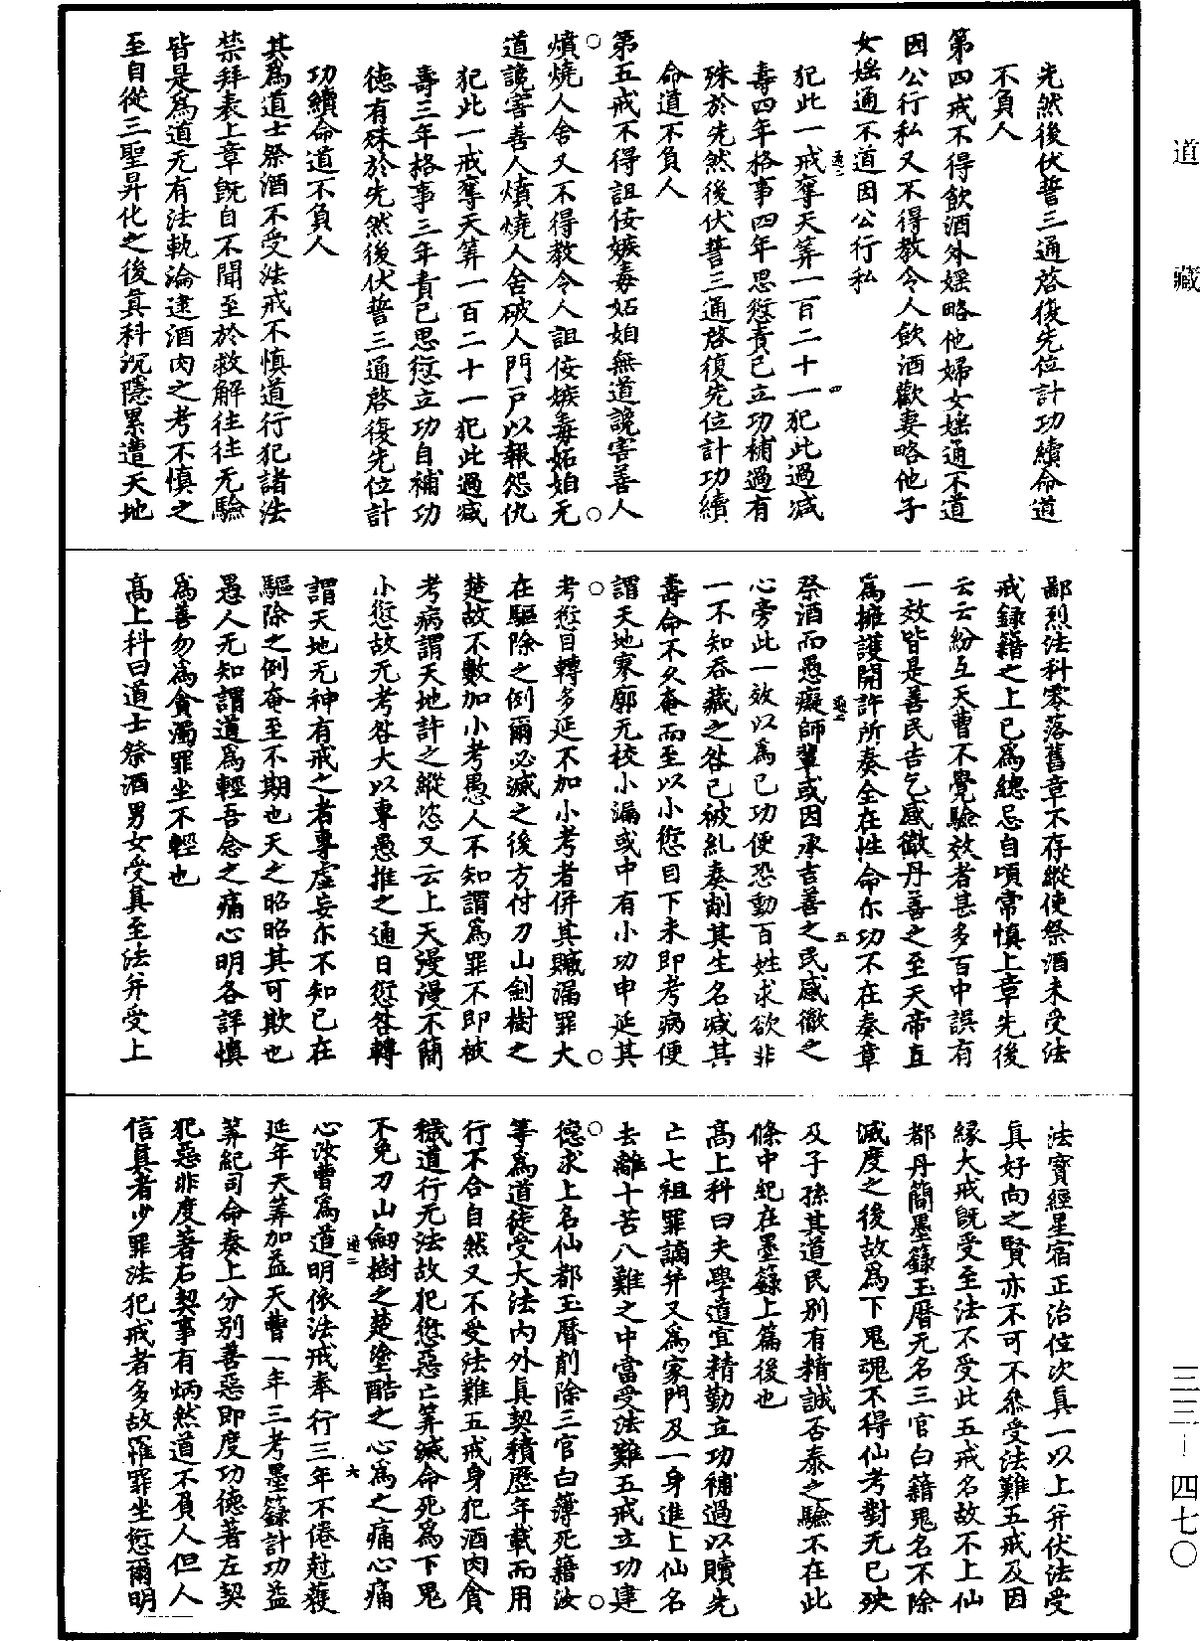 道藏
三三—四七〇
先然後伏誓三通啓復先位計功續命道
不負人
第四戒不得飲酒外婬略他婦女婬通不道
因公行私又不得教令人飲酒歡妻略他子
女婬通不道因公行私
犯此一戒奪天筭一百二十一犯此過减
壽四年格事四年思愆責己立功補過有
殊於先然後伏誓三通啓復先位計功續
命道不負人
第五戒不得詛佞嫉毒妬姐無道讒害善人
燌燒人舍又不得教令人詛佞嫉毒妬姐无
道讒害善人燌燒人舍破人門戶以報怨仇
犯此一戒奪天筭一百二十一犯此過减
壽三年格事三年責己思愆立功自補功
德有殊於先然後伏誓三通啓復先位計
功續命道不負人
其爲道士祭酒不受法戒不慎道行犯諸法
禁拜表上章旣自不聞至於救解往往无驗
皆是爲道无有法軌淪逮酒肉之考不慎之
至自從三聖昇化之後眞科沉隱累遭天地
鄙烈法科零落舊章不存縱使祭酒未受法
戒錄籍之上已爲總忌自頃常慎上章先後
云云紛互天曹不覺驗效者甚多百中誤有
一效皆是善民吉乞感徹丹善之至天帝直
爲擁護開許所奏全在性命尓功不在奏章
祭酒而愚癡師輩或因承吉善之民感徹之
心旁此一效以爲已功便恐動百姓求欲非
一不知吞藏之咎已被糺奏削其生名减其
壽命不久奄而至以小愆目下未即考病便
謂天地寥廓无校小漏或中有小功申延其
考愆目轉多延不加小考者併其贓漏罪大
在驅除之例爾必滅之後方付刀山劍樹之
楚故不數加小考愚人不知謂爲罪不即被
考病謂天地許之縱恣又云上天漫漫不簡
小愆故无考咎大以專愚推之通日愆咎轉
謂天地无神有戒之者專虛妄尓不知已在
驅除之例奄至不期也天之昭昭其可欺也
愚人无知謂道爲輕吾念之痛心明各詳慎
爲善勿爲貪濁罪坐不輕也
高上科曰道士祭酒男女受眞至法并受上
法寶經星宿正治位次眞一以上并伏法受
眞好尚之賢亦不可不叅受法難五戒及因
緣大戒旣受至法不受此五戒名故不上仙
都丹簡墨籙玉曆无名三官白籍鬼名不除
滅度之後故爲下鬼魂不得仙考對无已殃
及子孫其道民別有精誠否泰之驗不在此
條中紀在墨籙上篇後也
高上科曰夫學道宜精勤立功補過以贖先
亡七祖罪謫并又爲家門及一身進上仙名
去離十苦八難之中當受法難五戒立功建
德求上名仙都玉曆削除三官白簿死籍汝
等爲道徒受大法內外眞契積歷年載而用
行不合自然又不受法難五戒身犯酒肉貪
穢道行无法故犯愆惡亡筭減命死爲下鬼
不免刀山劒樹之楚塗酷之心爲之痛心痛
心汝曹爲道明依法戒奉行三年不倦愆蒦
延年天筭加益天曹一年三考墨籙計功益
筭紀司命奏上分別善惡即度功德著左契
犯惡非度著右契事有炳然道不負人但人
信眞者少罪法犯戒者多故罹罪坐愆爾明